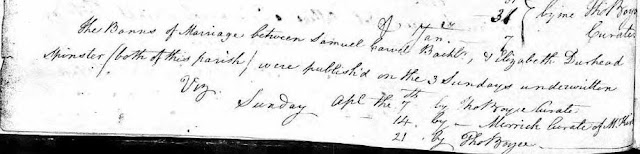 Jan. 27 — 31 by me Tho Boyce
7 Curate
The Banns of Marriage between Samuel Bachr, & Elizabeth Durhead
Spinster (both of this parish) were publish'd on the 3 Sundays underwritten
Viz
Sunday Apl the 7th by Tho Boyce Curate
14. by — Merrick Curate of
21. by Tho Boyce